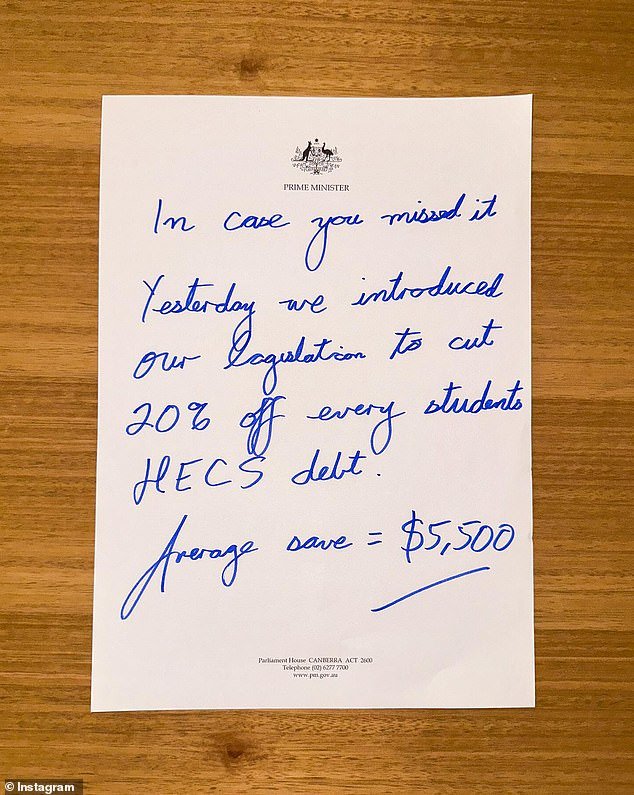 PRIME MINISTER
In case you missed it
Yesterday we introduced
our legislation to cut
20% off every students
HECS debt.
Average save = $5,500
Parliament House CANBERRA ACT 2600
Telephone (02) 6277 7700
www.pm.gov.au
© Instagram